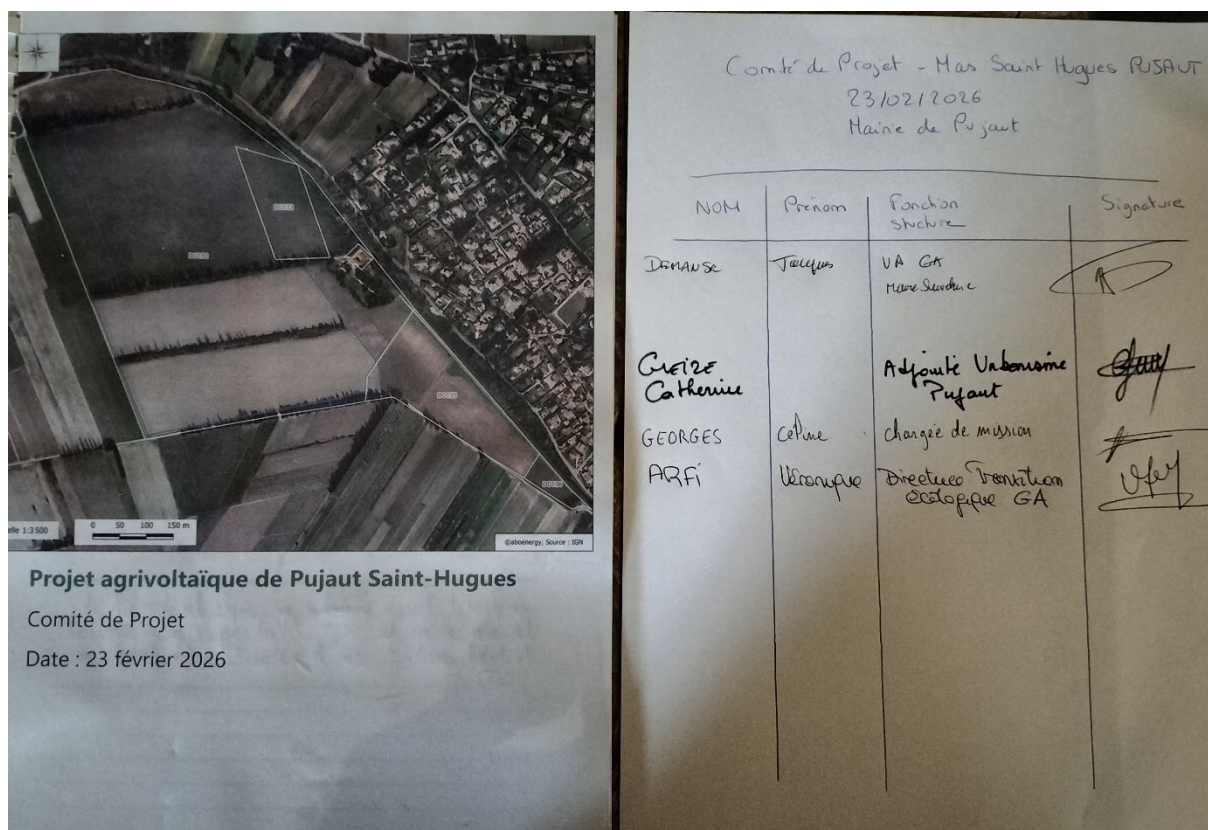 DG133
DG132
DG135
DG136
elle 1:3 500
0 50 100 150 m
©aboenergy; Source : IGN
Projet agrivoltaïque de Pujaut Saint-Hugues
Comité de Projet
Date : 23 février 2026
Comité de Projet - Mas Saint Hugues PUJAUT
23/02/2026
Mairie de Pujaut
NOM Prénom Fonction Signature
structure
DEMANSE Jacques VP GA
Maire
GLEIZE Adjointe Urbanisme
Catherine Pujaut
GEORGES Céline chargée de mission
ARFI Véronique Directrice Transition
écologique GA